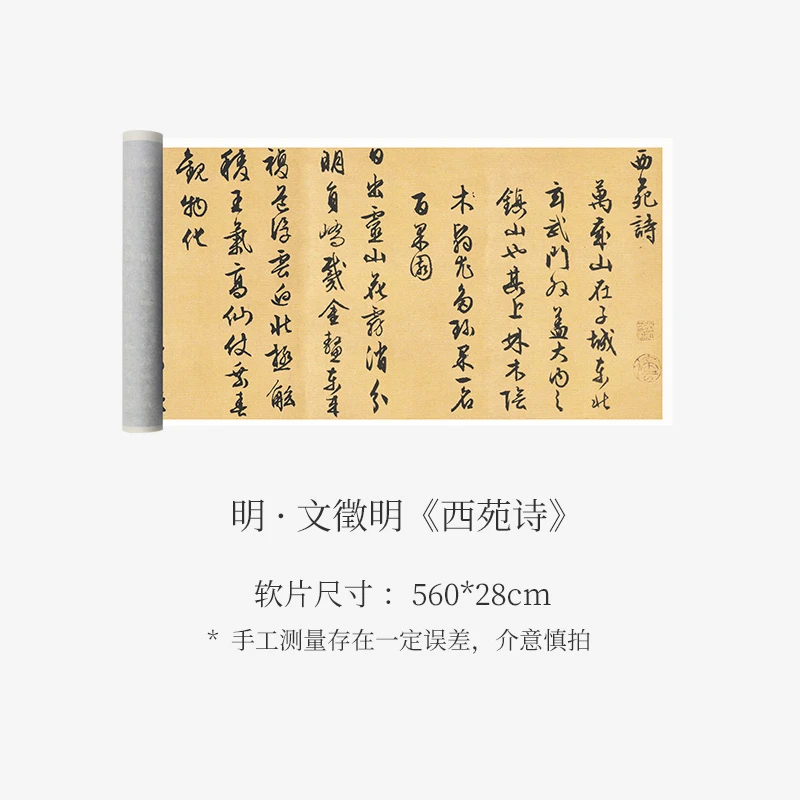 西苑詩
萬歲山在子城東北
玄武門外蓋大內之
鎮山也其上林木陰
木翳尤多珍果一名
百果園
日出靈山花霧消分
明員嶠戴金鰲東來
複道浮雲迥北極觚
稜王氣高仙仗乘春
觀物化
明 · 文徵明《西苑诗》
软片尺寸 ：560*28cm
* 手工测量存在一定误差，介意慎拍